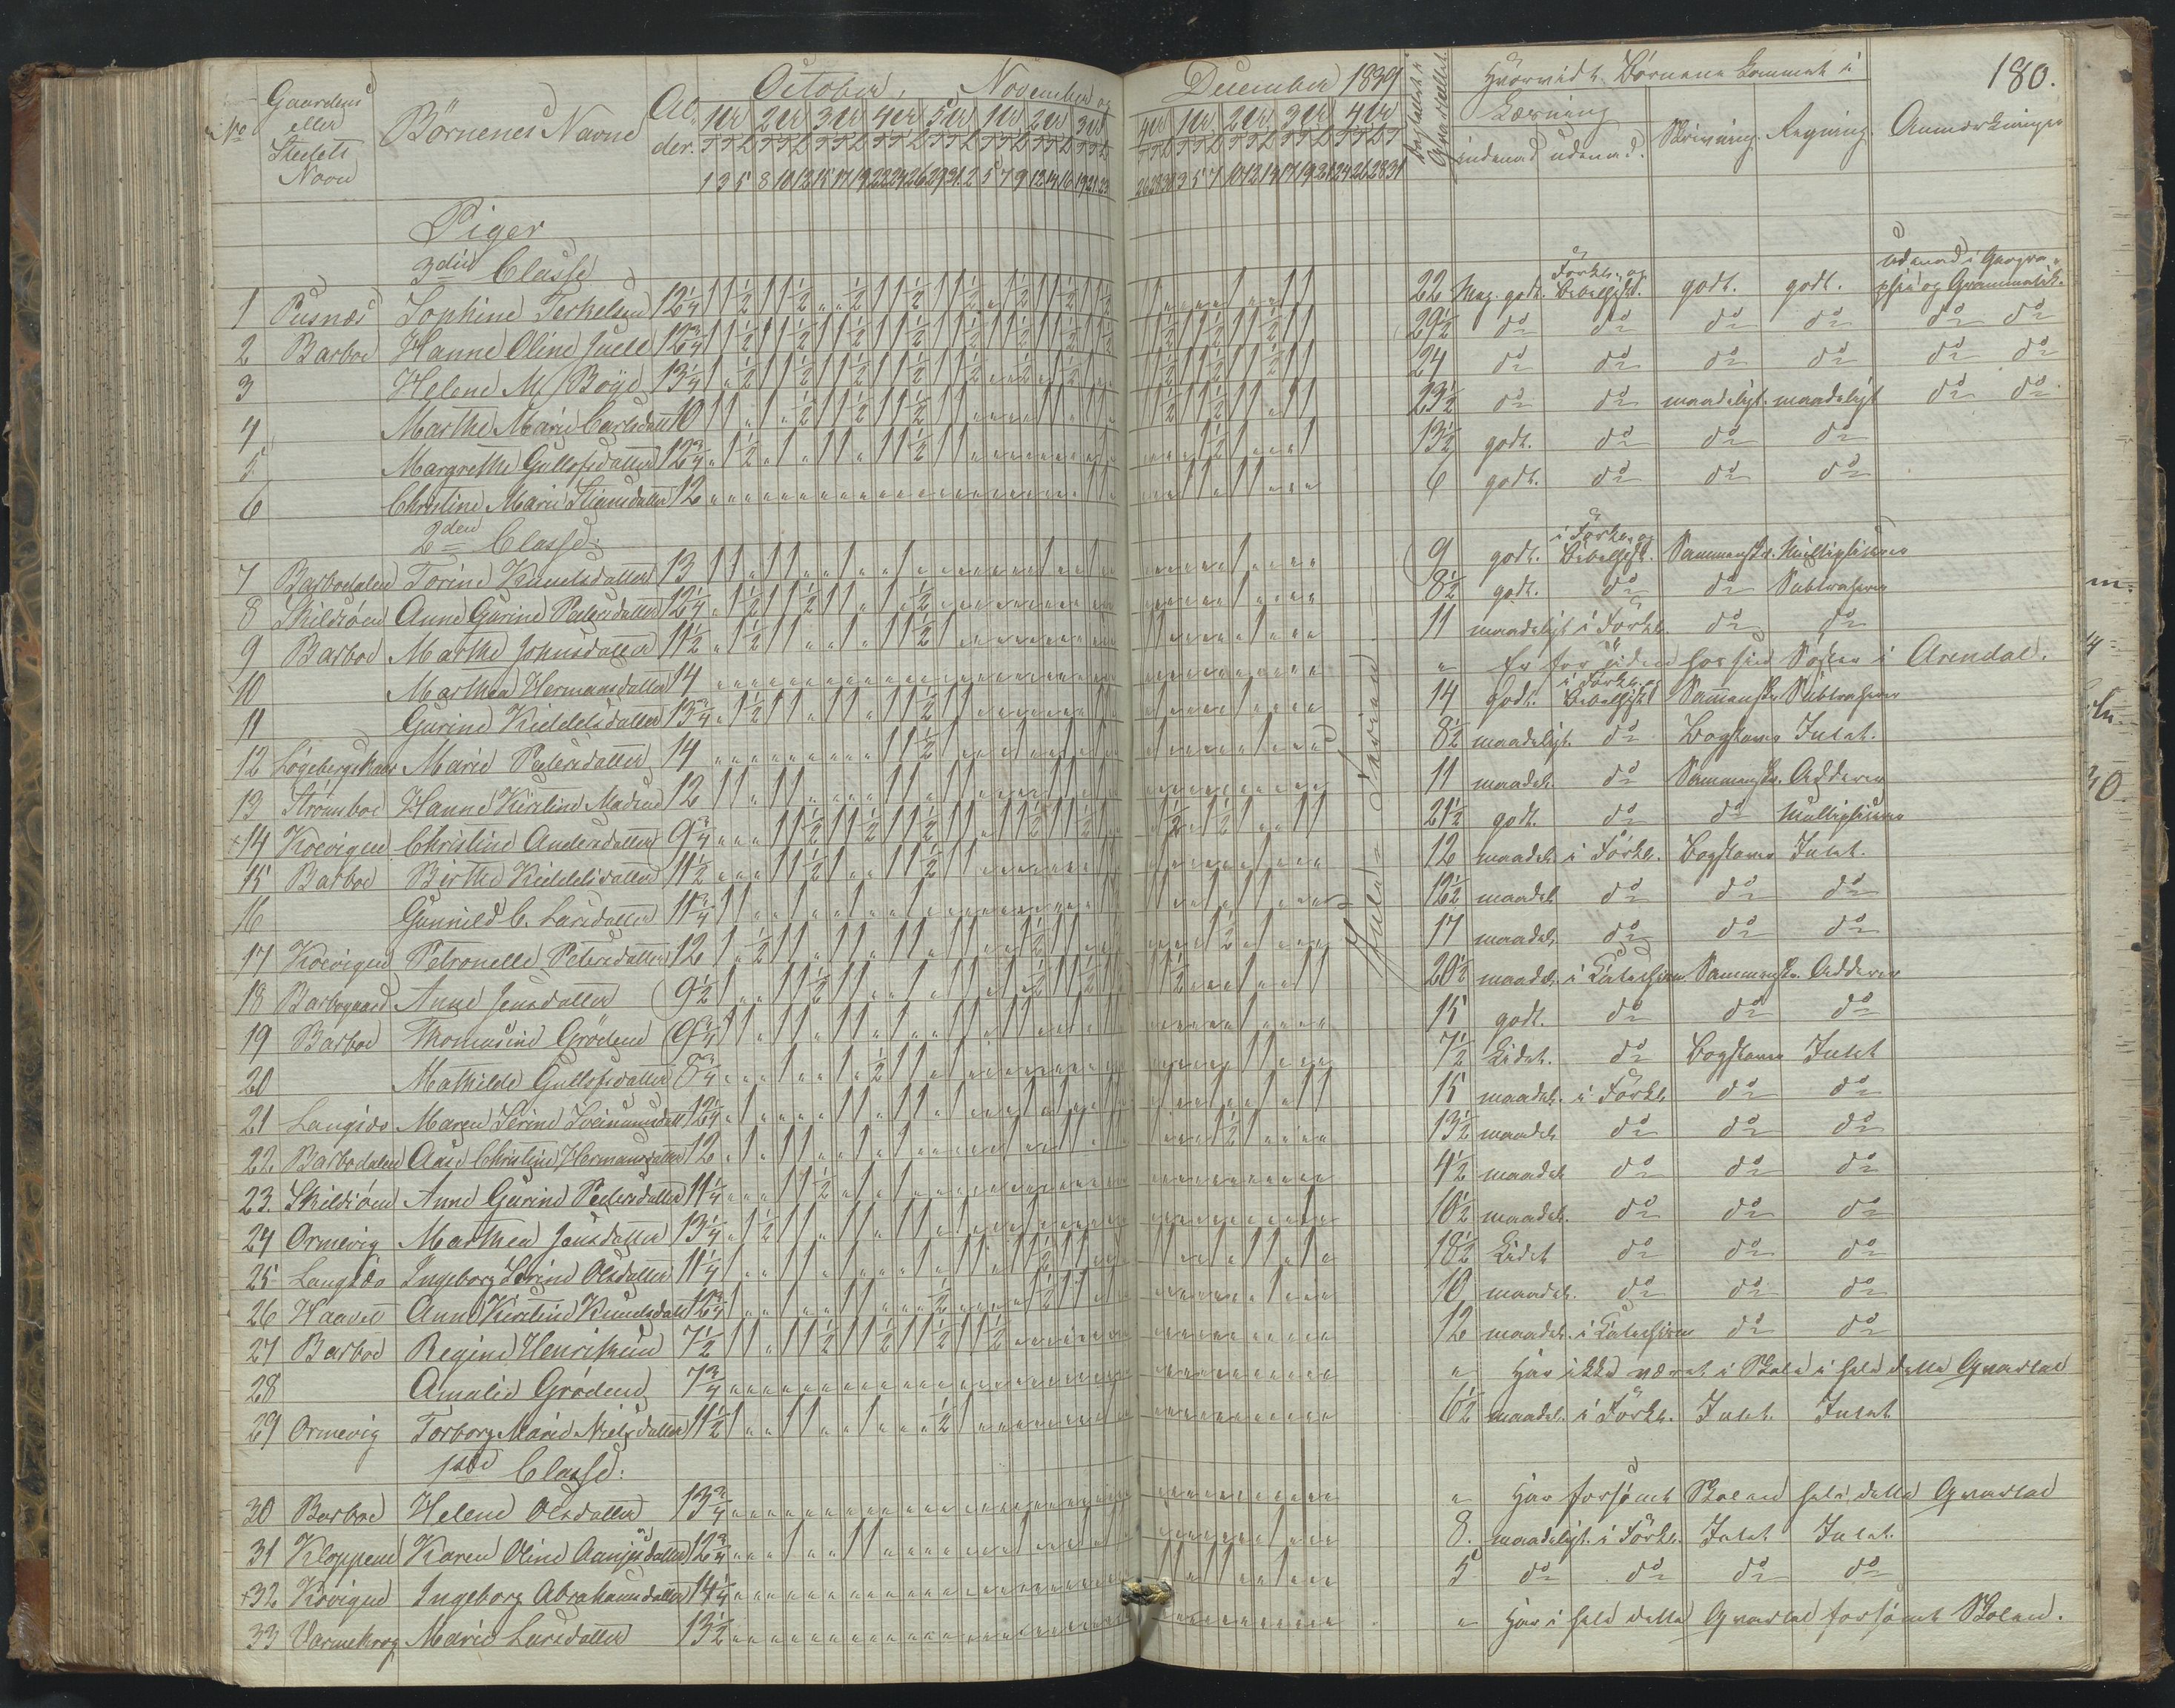 180.
No Gaardens eller Stedets Navn Börnenes Navne Alder. October, November og December 1839 Hvorvidt Börnene kommet i
Læsning indenad udenad. Skrivning. Regning. Anmærkninger
1ste U 2 U 3 U 4 U 5 U 1 U 2 U 3 U 4 U 1 U 2 U 3 U 4 U
1 3 5 8 10 12 15 17 19 22 24 26 29 31 2 5 7 9 12 14 16 19 21 23 26 28 30 3 5 7 10 12 14 17 19 21 24 26 28 31
Piger
3die Classe
1 Pusnæs Sophine Terkelsen 12 1/4 22 Meg. godt. Forkl. og Bibelhist. godt. godt. udenad i Geographie og Grammatik.
2 Barboe Hanne Oline Juell 12 3/4 29 1/2 do do do do do do
3 Helene M. Böye 13 1/4 24 do do do do do do
4 Marthe Marie Carlsdatt 10 23 1/2 do do maadeligt. maadeligt do do
5 Margrethe Gullofsdatter 12 3/4 13 1/2 godt. do do do
6 Christine Marie Stiansdatter 12 6 godt. do do do
2den Classe:
7 Barbodalen Torine Knudsdatter 13 9 godt. i Forkl. og Bibelhist. Sammenskr. Multiplicere
8 Skilsöen Anne Gurine Pedersdatter 12 1/4 8 1/2 godt. do do Subtrahere
9 Barboe Marthe Johnsdatter 11 1/2 11 maadeligt i Forkl. do do
10 Marthea Hermansdatter 14 " Er for tiden hos sin Söster i Arendal.
11 Gurine Kieldelsdatter 13 3/4 14 godt. i Forkl. og Bibelhist Sammenskr Subtrahere
12 Lögebergskaar Marie Pedersdatter 14 8 1/2 maadeligt. do Bogstaver Intet.
13 Strömboe Hanne Kirstine Madsen 12 11 maadel. do Sammenskr. Addere
14 Kocvigen Christine Andersdatter 9 3/4 21 1/2 godt. do do Multiplicere
15 Barboe Birthe Kieldelsdatter 11 1/2 12 maadel. i Forkl. Bogstaver Intet.
16 Gunnild C. Larsdatter 11 3/4 12 1/2 maadel do do do
17 Kocvigen Petronelle Petersdatter 12 17 maadel. do do do
18 Barbogaard Anne Jensdatter 9 1/2 20 1/2 maadel. i Catechism. Sammenskr. Addere
19 Barboe Thomasine Gröden 9 3/4 15 godt. do do do
20 Mathilde Gullofsdatter 8 3/4 7 1/2 Lidet. do Bogstaver Intet
21 Langsæ Maren Serine Sveinunsdatt 12 1/4 15 maadel. i Forkl. do do
22. Barbodalen Aase Christine Hermansdatter 12 13 1/2 maadel. do do do
23. Skilsöen Anne Gurine Pedersdatter 11 1/4 4 1/2 maadel do do do
24 Ormevig Marthea Jensdatter 13 1/4 10 1/2 maadel. do do do
25 Langsæ Ingeborg Serine Olsdatter 11 1/4 18 1/2 Lidet do do do
26 Haaven Anne Kirstine Knudsdatt 10 3/4 10 maadel. do do do
27 Barboe Regine Henriksen 7 1/2 12 maadel. i Catechism do do
28 Amalie Gröden 7 3/4 " Har ikke været i Skole i hele dette Qvartal
29 Ormevig Torborg Marie Nielsdatter 11 1/2 6 1/2 maadel. i Forkl. Intet. Intet.
1ste Classe:
30 Barboe Helene Olsdatter 13 3/4 " Har forsömt Skolen hele dette Qvartal
31 Kloppene Karen Oline Aanjesdatter 12 3/4 8. maadeligt. i Forkl. Intet Intet.
32 Kovigen Ingeborg Abrahamsdatter 14 1/4 5 do do do do
33 Varmekrog Marie Larsdatter 13 1/2 " Har i hele dette Qvartal forsömt Skolen.
Jule-Ferien